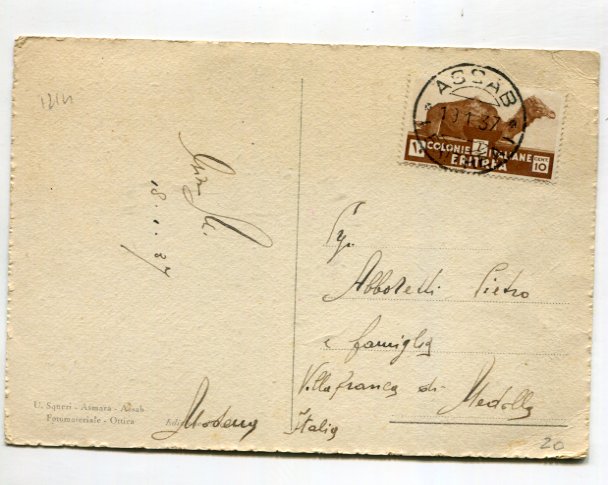 12121
ASSAB
19.1.37
ERITREA
COLONIE ITALIANE
ERITREA
CENT. 10
18.1.37
Sig.
Abboretti Pietro
e famiglia
Villafranca di Medolla
Modena Italia
U. Squeri - Asmara - Assab
Fotomateriale - Ottica
20